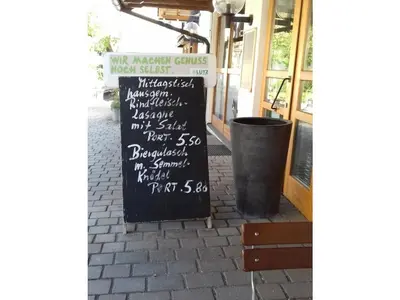 WIR MACHEN GENUSS
NOCH SELBST.
LUTZ
Mittagstisch
hausgem.
Rindfleisch-
Lasagne
mit Salat
PORT. 5,50
Biergulasch
m. Semmel-
Knödel
PORT. 5.80